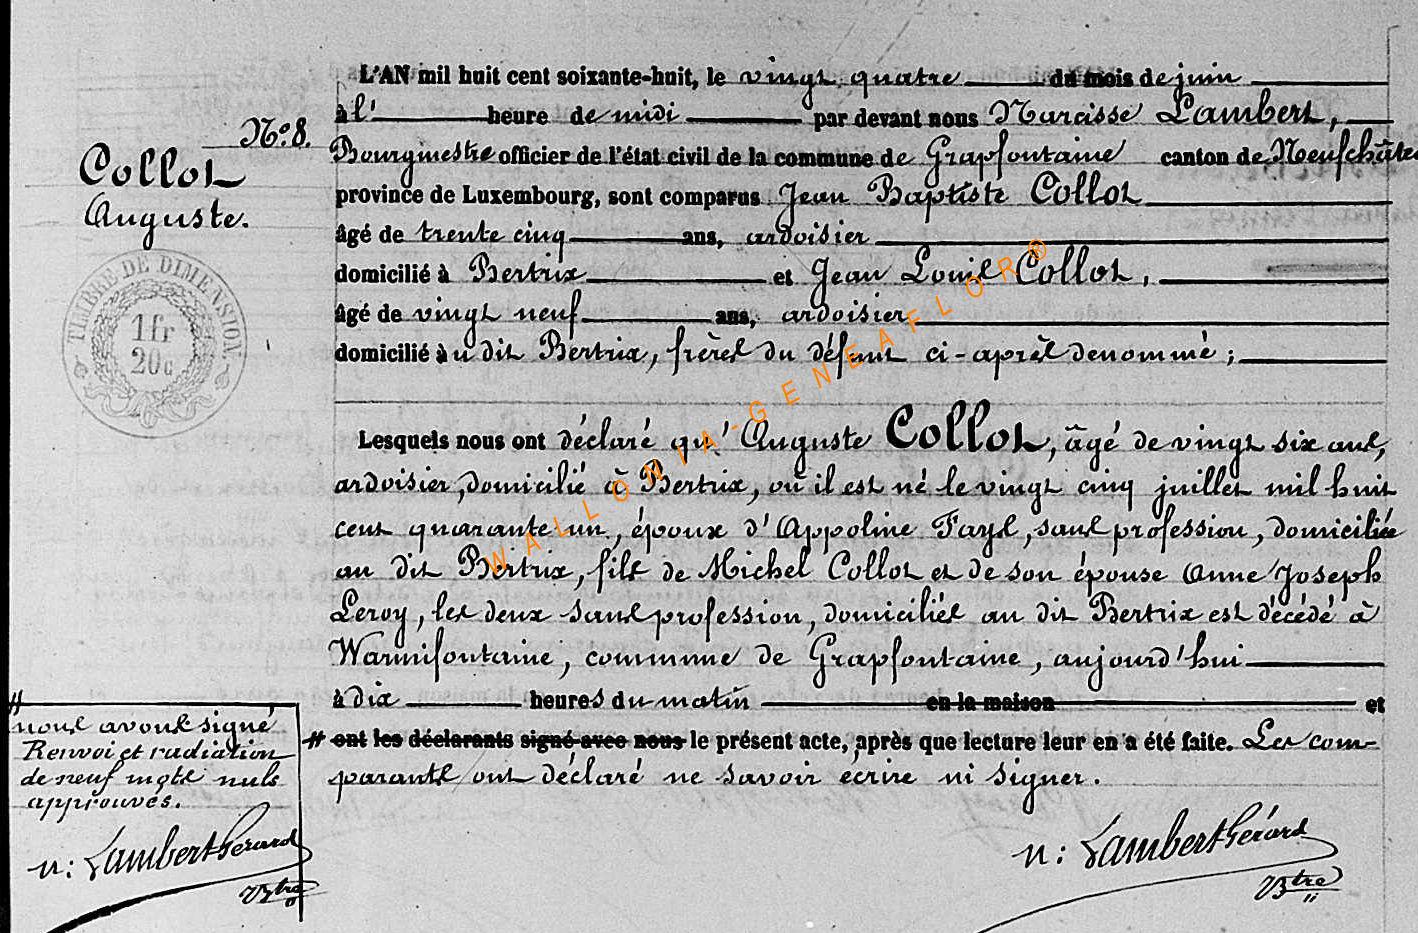 L'AN mil huit cent soixante-huit, le vingt quatre du mois de juin
à l' heure de midi par devant nous Narcisse Lambert,
N° 8.
Collot
Auguste.
Bourgmestre officier de l'état civil de la commune de Grapfontaine canton de Neufchâteau
province de Luxembourg, sont comparus Jean Baptiste Collot
âgé de trente cinq ans, ardoisier
domicilié à Bertrix et Jean Louis Collot,
âgé de vingt neuf ans, ardoisier
domicilié au dit Bertrix, frères du défunt ci-après denommé ;
TIMBRE DE DIMENSION.
1 fr
20 c
Lesquels nous ont déclaré qu' Auguste Collot, âgé de vingt six ans,
ardoisier, domicilié à Bertrix, où il est né le vingt cinq juillet mil huit
cent quarante un, époux d'Appoline Fays, sans profession, domiciliée
au dit Bertrix, fils de Michel Collot et de son épouse Anne Joseph
Leroy, les deux sans profession, domiciliés au dit Bertrix est décédé à
Warmifontaine, commune de Grapfontaine, aujourd'hui
à dix heures du matin en la maison et
# ont les déclarants signé avec nous le présent acte, après que lecture leur en a été faite. Les com-
parants ont déclaré ne savoir écrire ni signer.
# nous avons signé
Renvoi et radiation
de neuf mots nuls
approuvés.
N: Lambert Gérard
Btre
N: Lambert Gérard
Btre
WALLONIA-GENEAFLOR®